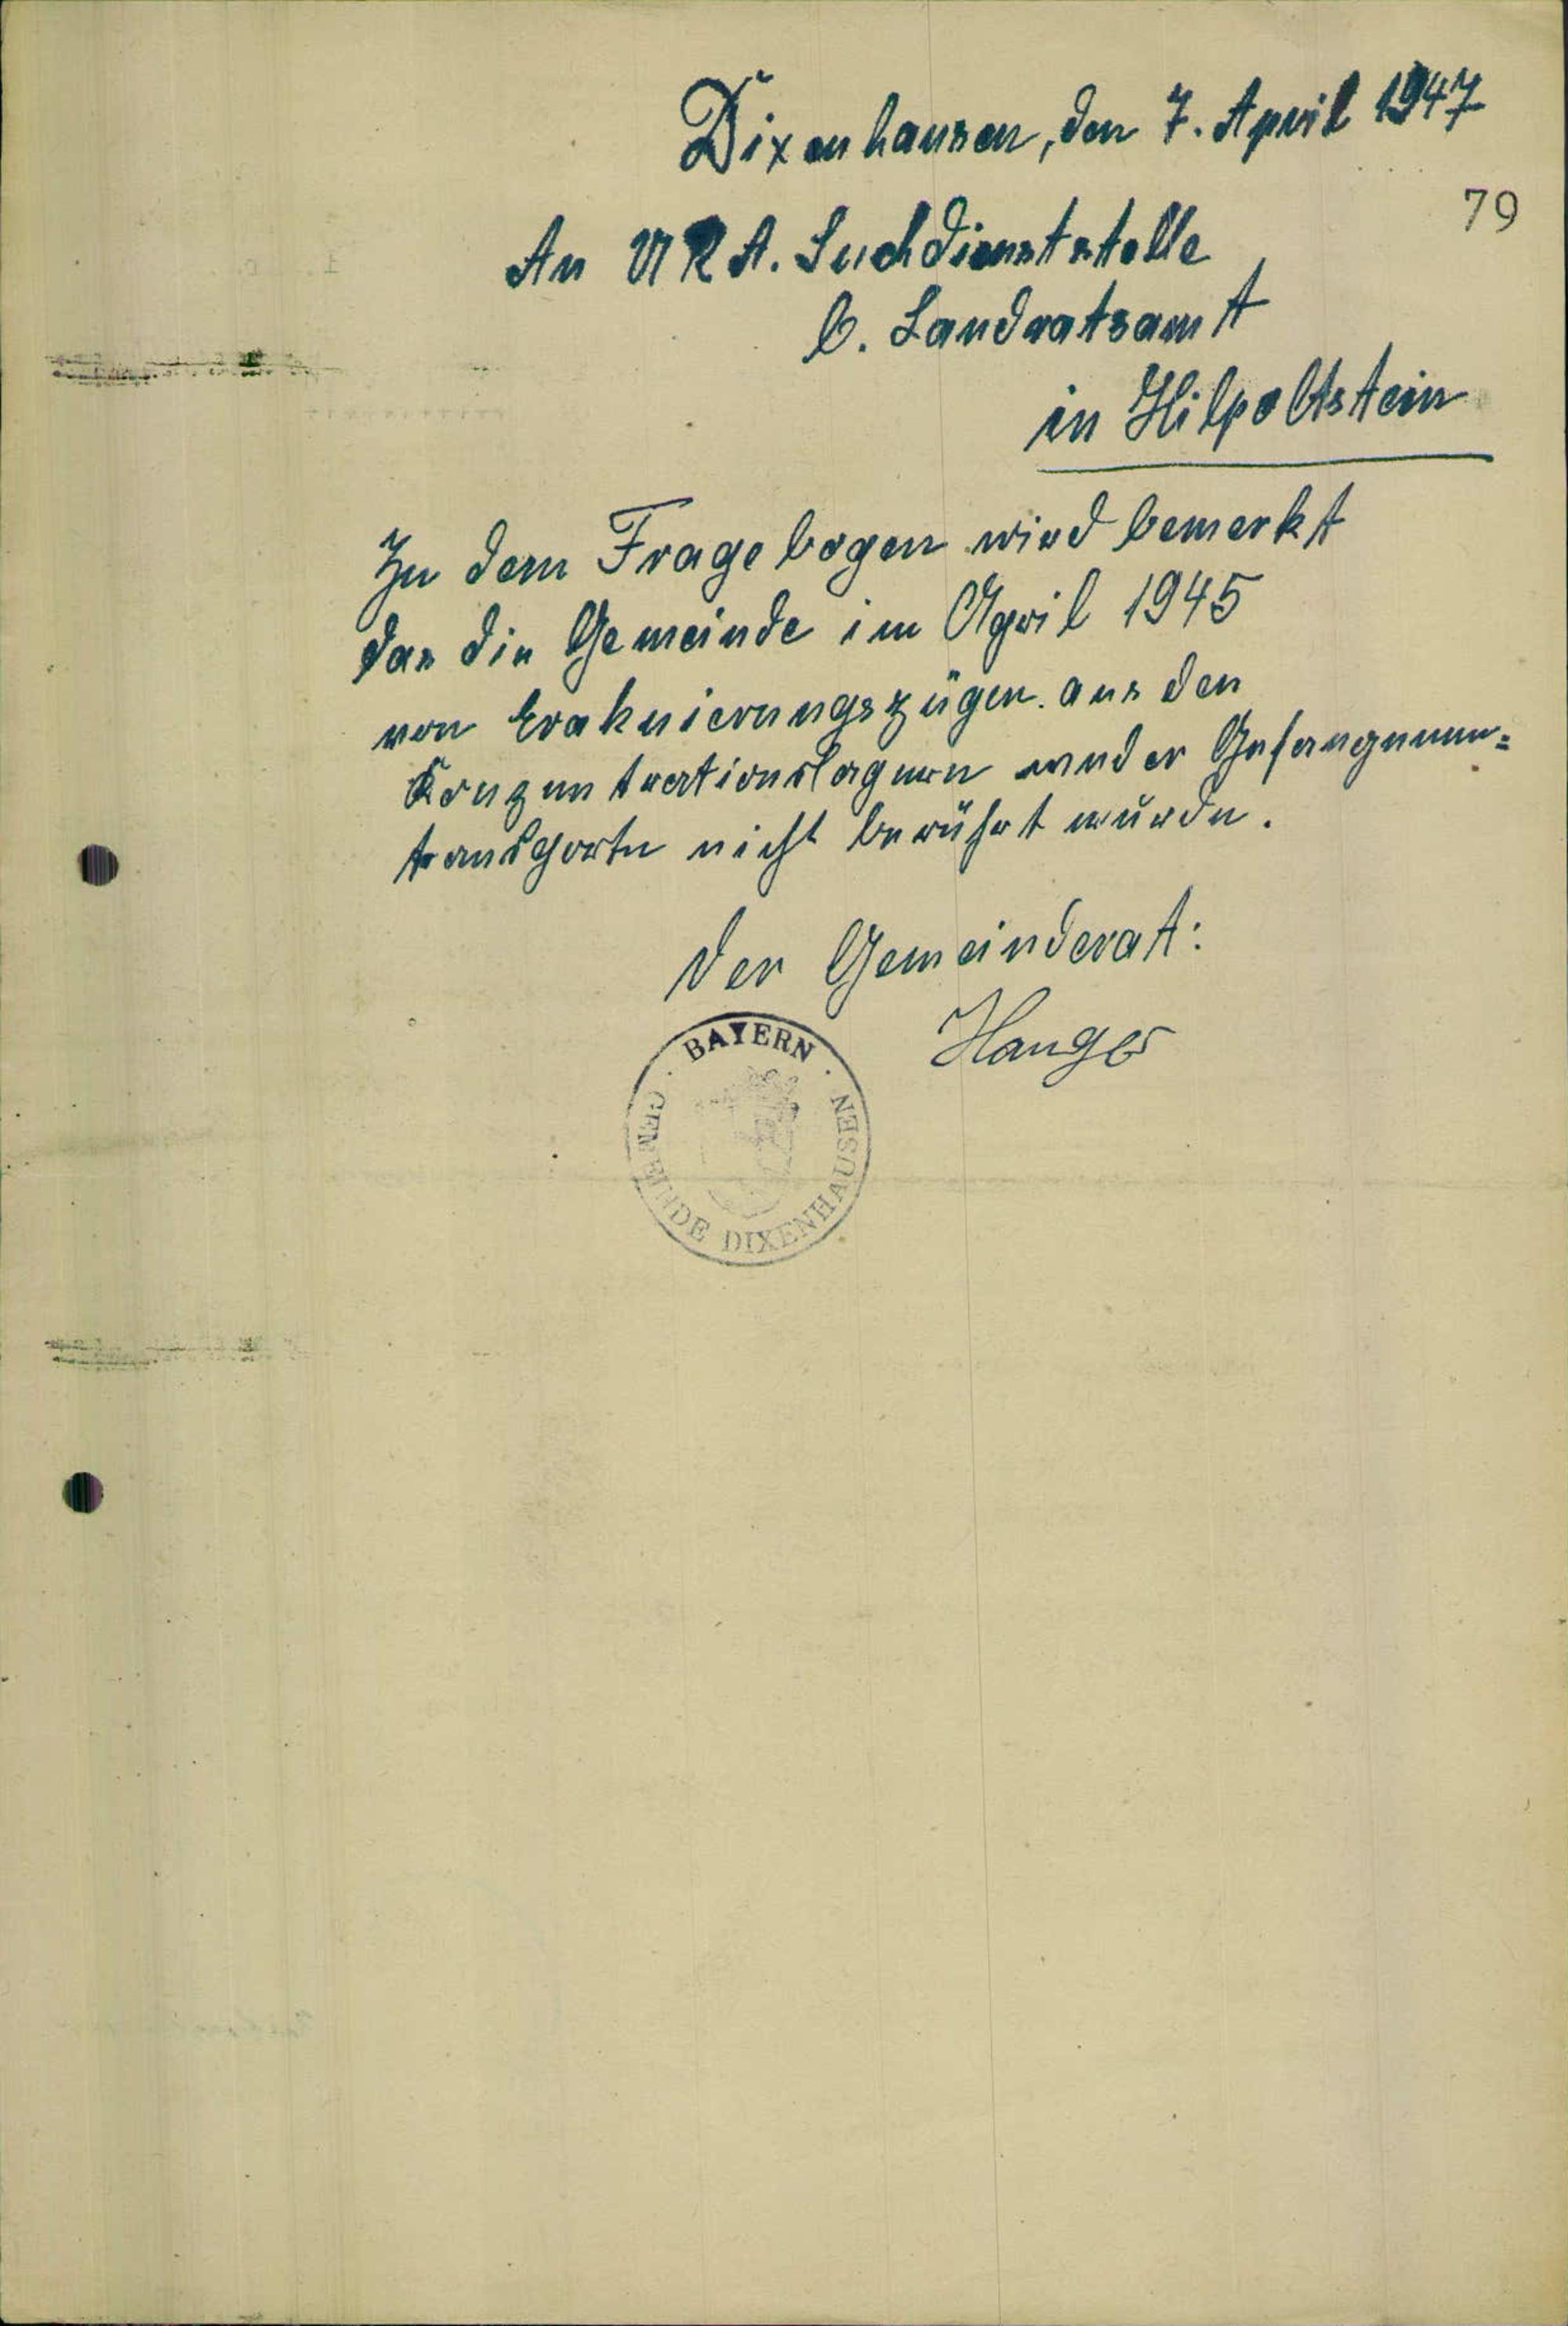 Dixenhausen, den 7. April 1947
79
An URA. Suchdienststelle
b. Landratsamt
in Hilpoltstein
Zu dem Fragebogen wird bemerkt
das die Gemeinde im April 1945
von Evakuierungszügen aus den
Konzentrationslagern und der Gefangenen=
transporte nicht berührt wurde.
Der Gemeinderat:
Hanger
BAYERN
GEMEINDE DIXENHAUSEN